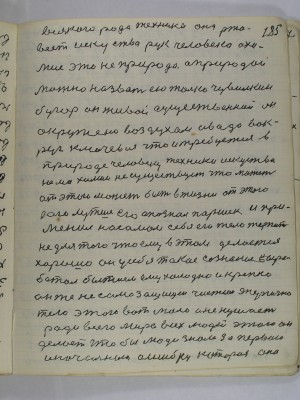 всякого рода техника она ржа- 185
веет искуства рук человека охо-
мие это не природа, а природой
можно назвать его только чувилкин
бугор он живой существенный он
окружено воздухам, а вода вок-
руг ключевая что и требуется в
природе человеку техники искуства
нема химии не существует что
от этого может быть в жизни от этого
всего лутше его опознал паршек и при-
менил на самом себя его тело терпит
не для того что ему в этом делается
хорошо он у себя такое сознание выра-
ботал быть ему холодно и крепко
он же не сама защищен чистыми энергично
тело этого вот мало и не кушает
ради всего мира всех людей этого он
делает что бы люди знали за первого
иначальную ошибку которая она